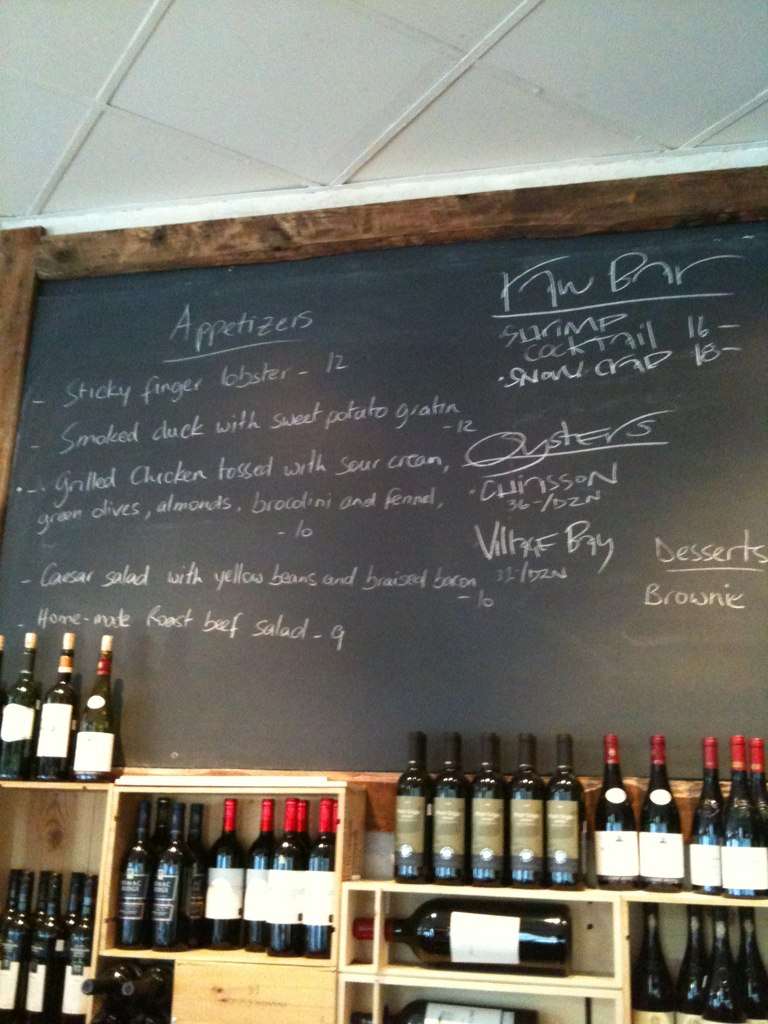 Appetizers
- Sticky finger lobster - 12
- Smoked duck with sweet potato gratin
- 12
- Grilled Chicken tossed with sour cream,
green olives, almonds, brocolini and fennel,
- 10
- Caesar salad with yellow beans and braised bacon
- 10
- Home-made Roast beef salad - 9
RAW BAR
SHRIMP
COCKTAIL 16-
SNOW CRAB 18-
Oysters
36-/DZN
VILLAGE BAY
32-/DZN
Desserts
Brownie